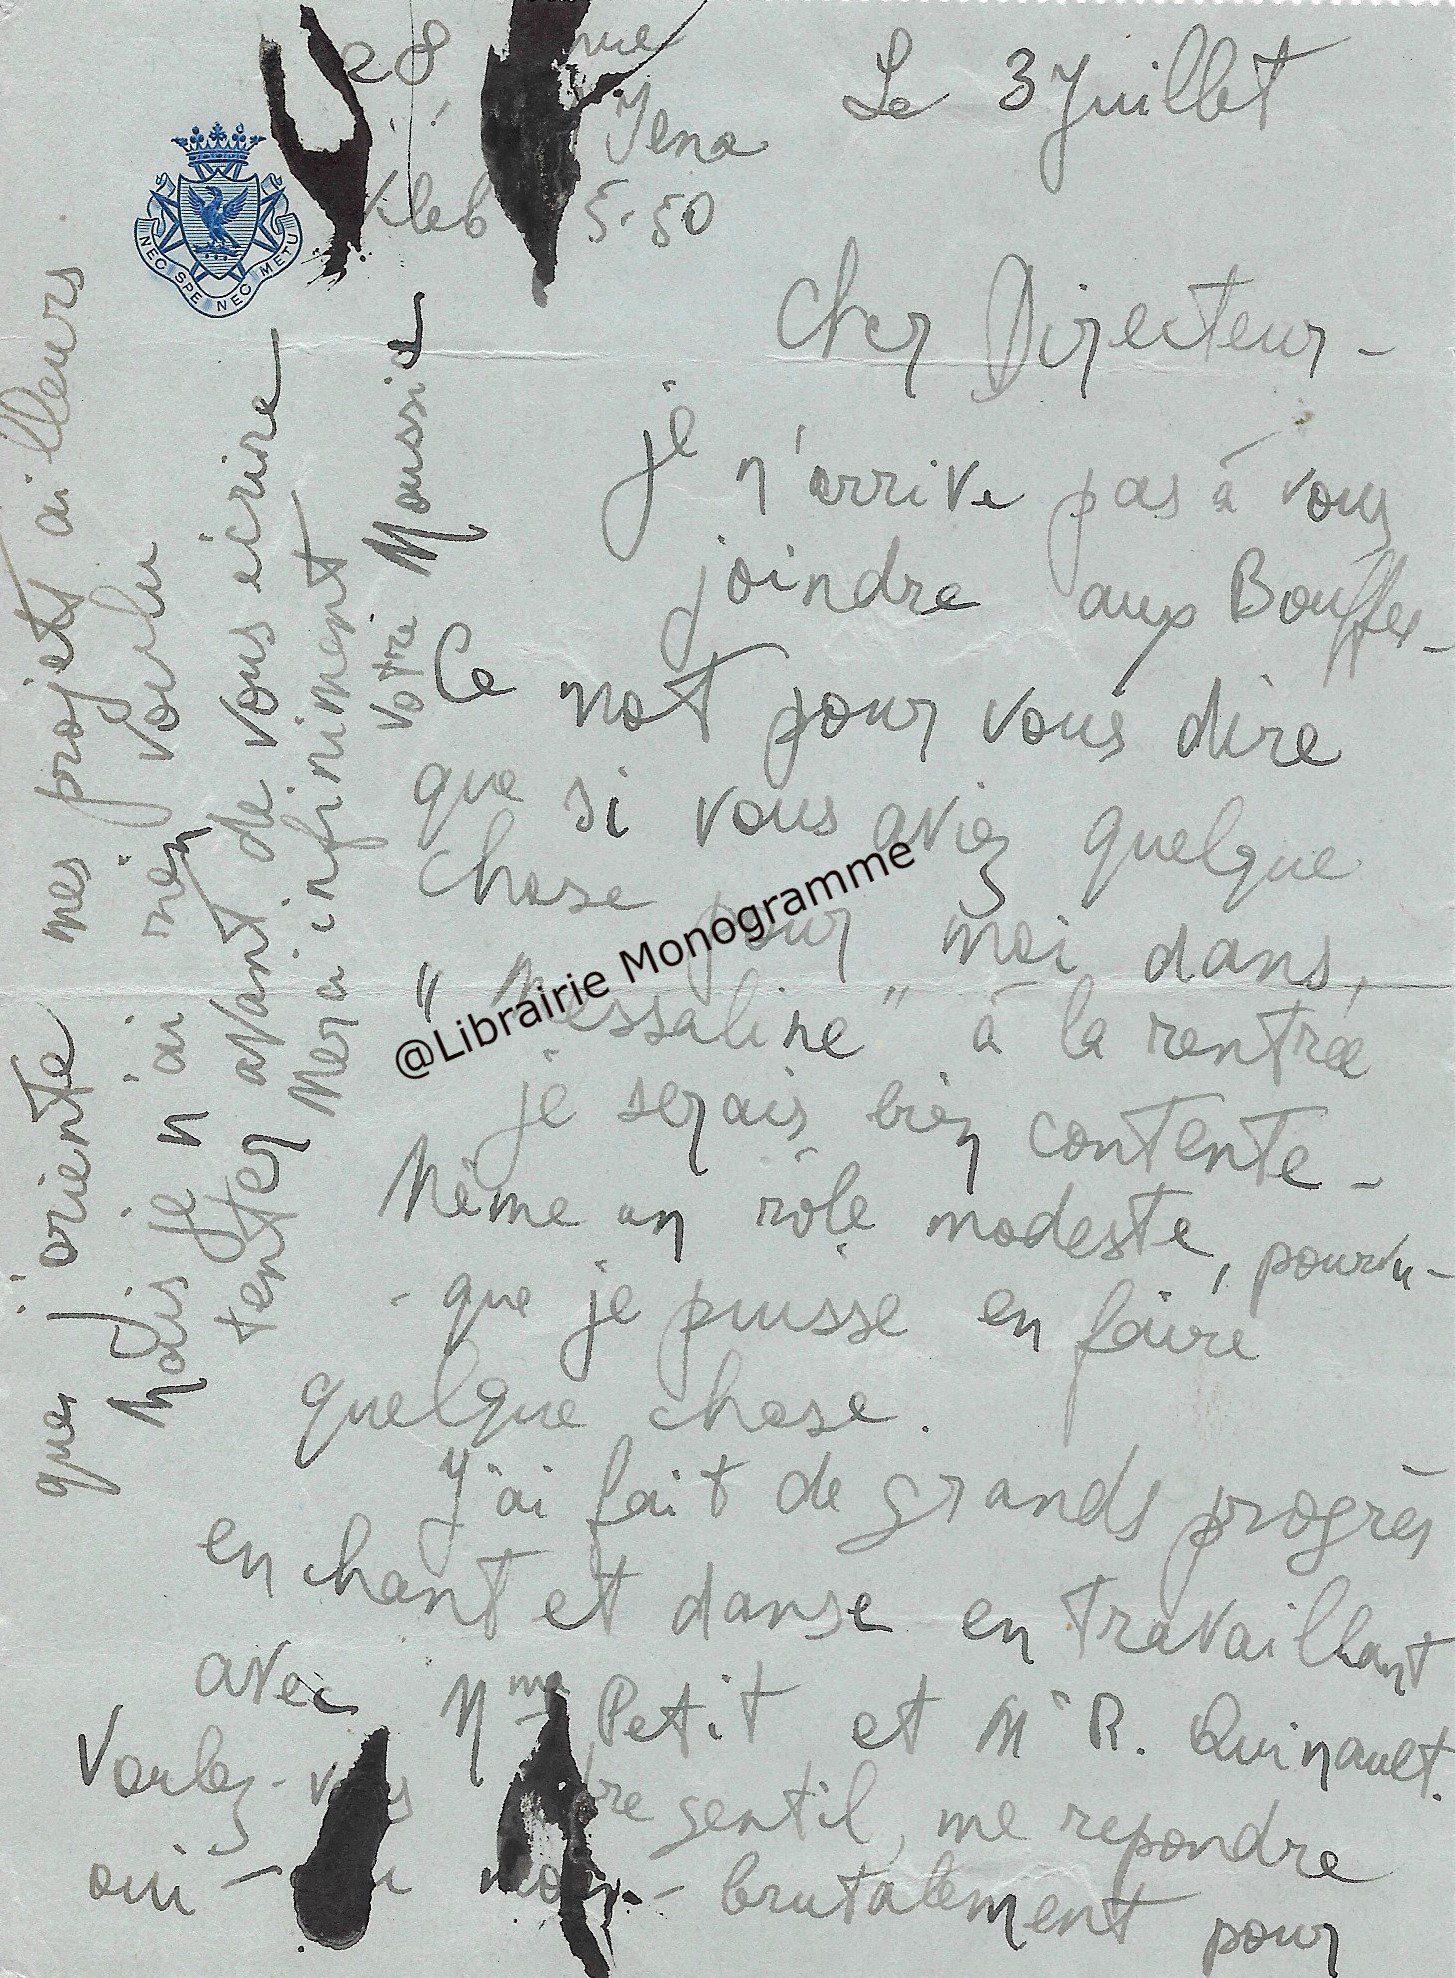 28 Av
Iena
Kleb 5-50
NEC SPE NEC METU
Le 3 Juillet
Cher Directeur -
je n'arrive pas à vous
joindre aux Bouffes -
Ce mot pour vous dire
que si vous aviez quelque
chose pour moi dans,
"Messaline" à la rentrée
je serais bien contente -
Même un rôle modeste, pourvu -
- que je puisse en faire
quelque chose.
J'ai fait de grands progrès
en chant et danse en travaillant
avec Mme Petit et Mr R. Quinault.
Voulez-vous être gentil, me repondre
oui - ou non - brutalement pour
que j'oriente mes projets ailleurs
Mais je n'ai rien voulu
tenter avant de vous écrire
Merci infiniment
Votre Moussia
@Librairie Monogramme